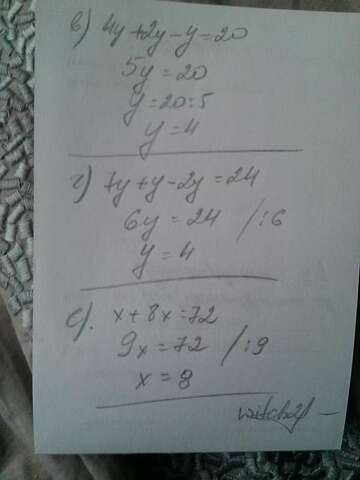 в) 4y+2y-y=20
5y=20
y=20:5
y=4
г) 7y+y-2y=24
6y=24 /:6
y=4
е). x+8x=72
9x=72 /:9
x=8